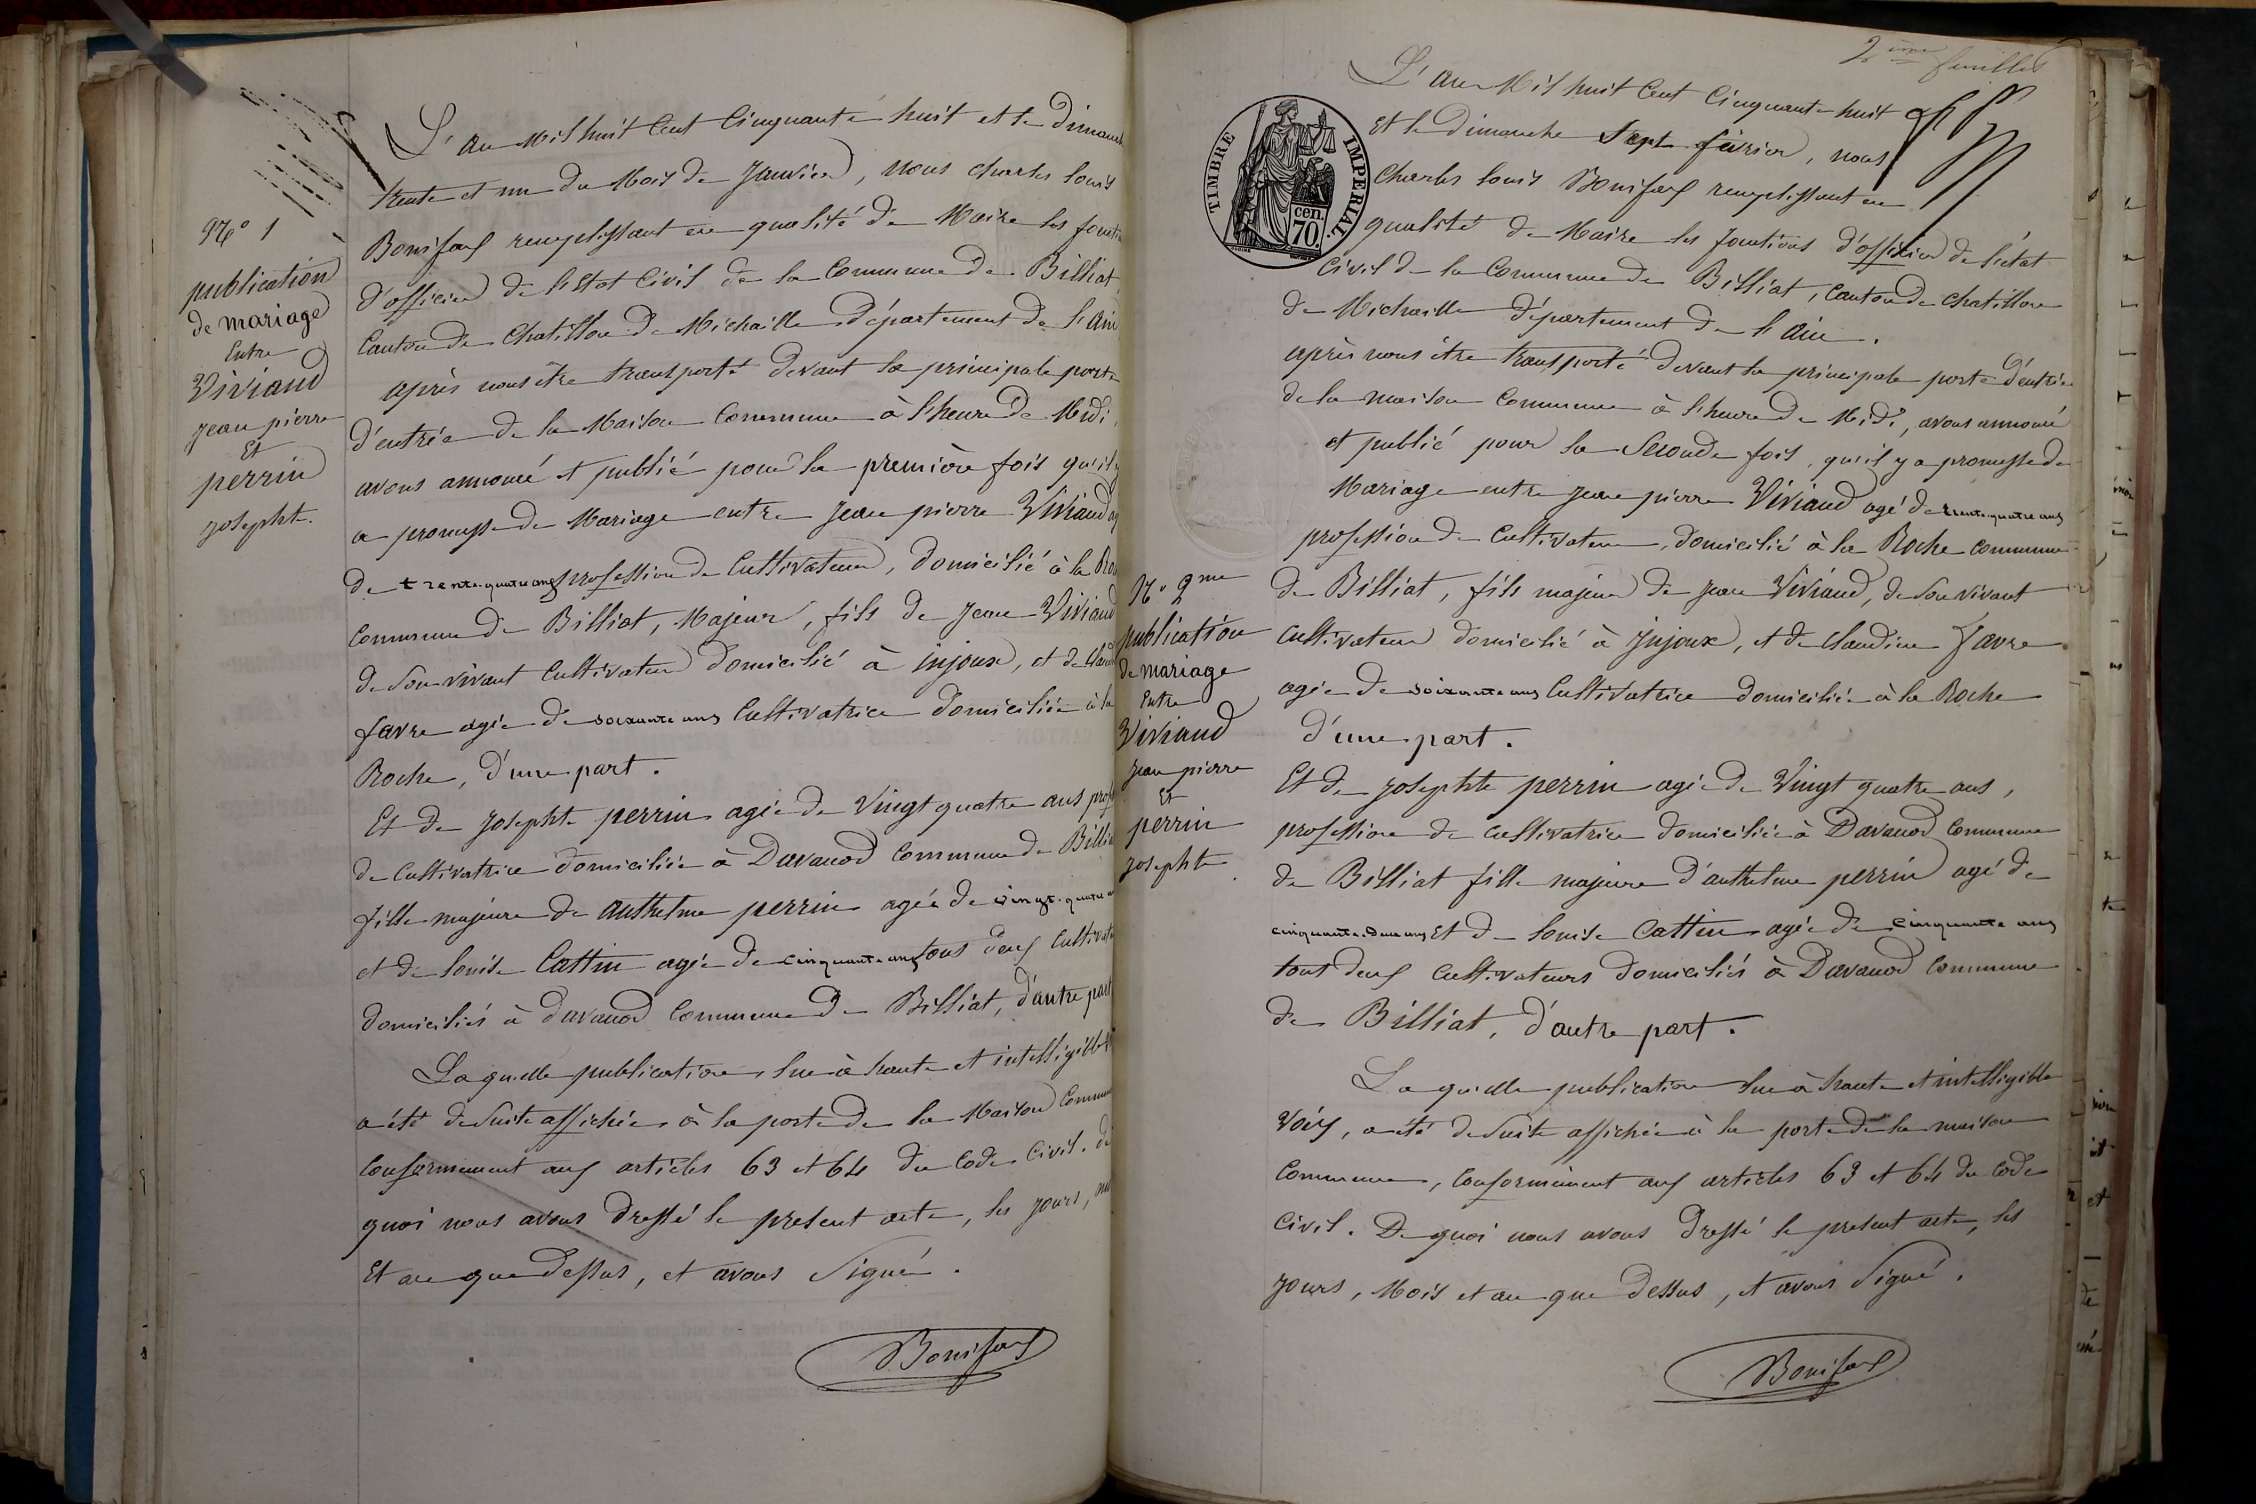 N° 1
publication
de mariage
Entre
Viviand
jean pierre
Et
perrin
josephte.
L'an Mil huit Cent Cinquante huit et le Dimanch
trente et un du Mois de Janvier, nous charles louis
Bonifax remplissant en qualité de Maire les foncti
d'officier de l'Etat Civil de la Commune de Billiat
Canton de Chatillon de Michaille département de l'Ain
après nous être transporté devant la principale porte
d'entrée de la Maison Commune à l'heure de Midi,
avons annoncé et publié pour la première fois qu'il y
a promesse de Mariage entre jean pierre Viviand ag
de trente-quatre ans profession de Cultivateur, domicilié à la Ro
Commune de Billiat, Majeur, fils de jean Viviand
de Son vivant Cultivateur domicilié à injoux, et de Clau
favre agée de soixante ans Cultivatrice domiciliée à la
Roche, d'une part.
Et de josephte perrin agée de Vingt quatre ans prof
de Cultivatrice domiciliée à Davanod commune de Billia
fille majeure de anthelme perrin agée de vingt-quatre
et de louise Cattin agée de cinquante ans tous deux Cultivat
domiciliés à davanod Commune de Billiat, d'autre part
Laquelle publication lue à haute et intelligible
a été de Suite affichée à la porte de la Maison Commu
Conformement aux articles 63 et 64 du Code Civil. de
quoi nous avons dressé le présent acte, les jours,
Et an que dessus, et avons Signé.
Bonifax
2ème feuillet
TIMBRE IMPERIAL
cen.
70.
L'an Mil huit Cent Cinquante huit
Et le Dimanche Sept février, nous
Charles louis Bonifax remplissant en
qualité de Maire les fonctions d'officier de l'état
Civil de la Commune de Billiat, Canton de chatillon
de Michaille département de l'Ain.
après nous être transporté devant la principale porte d'entrée
de la maison Commune à l'heure de Midi, avons annoncé
et publié pour la Seconde fois, qu'il y a promesse de
Mariage entre jean pierre Viviand agé de trente-quatre ans
profession de Cultivateur, domicilié à la Roche commune
de Billiat, fils majeur de jean Viviand, de Son vivant
cultivateur domicilié à Injoux, et de claudine favre
agée de soixante ans Cultivatrice domiciliée à la Roche
d'une part.
Et de josephte perrin agée de Vingt quatre ans,
profession de cultivatrice domiciliée à Davanod Commune
de Billiat fille majeure d'anthelme perrin agé de
cinquante-deux ans Et de louise Cattin agée de cinquante ans
tout deux cultivateurs domiciliés à Davanod Commune
de Billiat, d'autre part.
Laquelle publication lue à haute et intelligible
Voix, a été de Suite affichée à la porte de la maison
Commune, Conformément aux articles 63 et 64 du Code
Civil. De quoi nous avons dressé le présent acte, les
jours, Mois et an que dessus, et avons Signé.
Bonifax
N° 2me
publication
de mariage
Entre
Viviand
jean pierre
Et
perrin
josephte